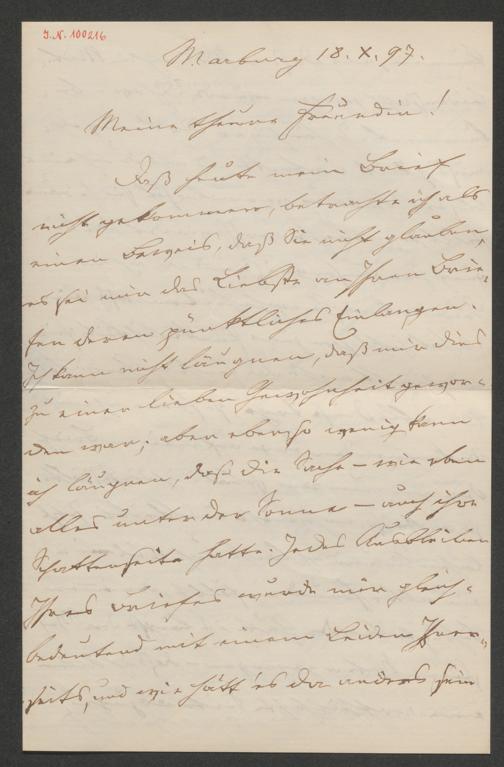 J.N. 100216
Marburg 18. X. 97.
Meine theure Freundin!
Daß heute mein Brief
nicht gekommen, betrachte ich als
einen Beweis, daß Sie nicht glauben,
es sei mir das Liebste an Ihren Brie-
fen deren pünktliches Einlangen.
Ich kann nicht läugnen, daß mir dies
zu einer lieben Gewohnheit gewor-
den war; aber ebenso wenig kann
ich läugnen, daß die Sache – wie eben
alles unter der Sonne – auch ihre
Schattenseite hatte. Jedes Ausbleiben
Ihres Briefes wurde mir gleich-
bedeutend mit einem Leiden Ihrer-
seits, und wie hätt' es da anders sein